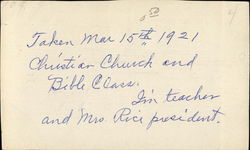 50
Taken Mar 15th 1921
Christian Church and
Bible Class.
I'm teacher
and Mrs Rice president.